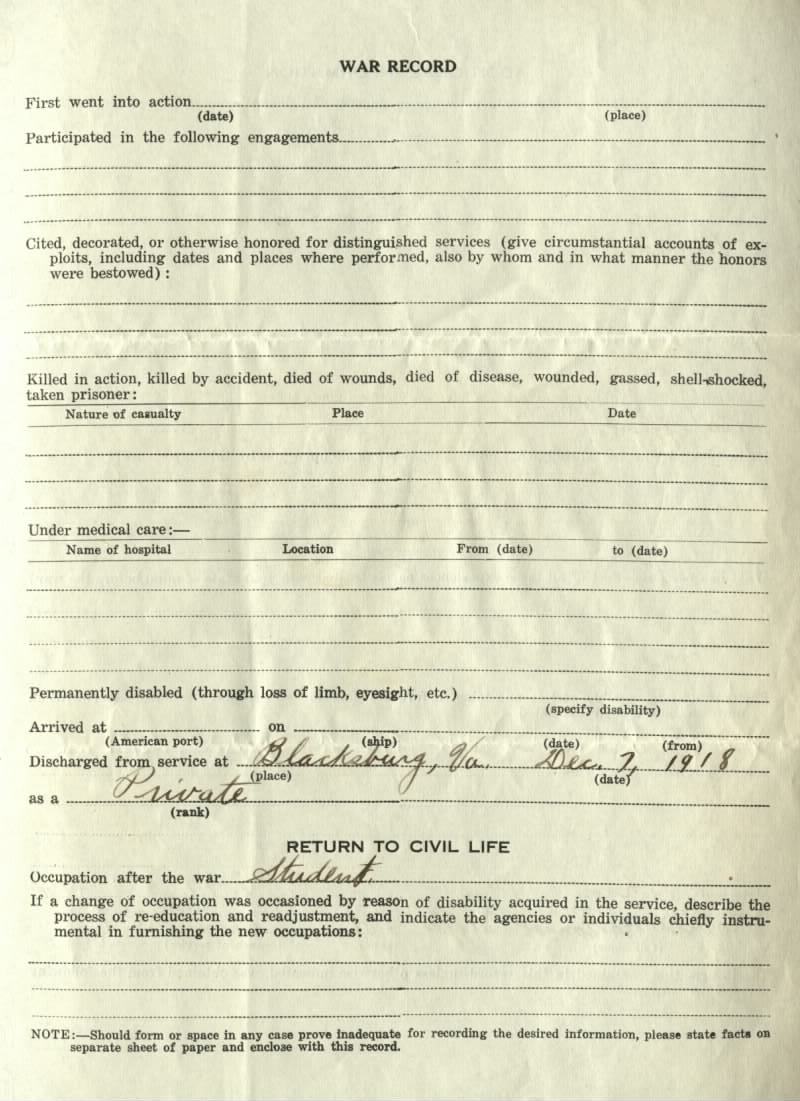 WAR RECORD
First went into action
(date) (place)
Participated in the following engagements
Cited, decorated, or otherwise honored for distinguished services (give circumstantial accounts of ex-
ploits, including dates and places where performed, also by whom and in what manner the honors
were bestowed) :
Killed in action, killed by accident, died of wounds, died of disease, wounded, gassed, shell-shocked,
taken prisoner:
Nature of casualty Place Date
Under medical care:—
Name of hospital Location From (date) to (date)
Permanently disabled (through loss of limb, eyesight, etc.)
(specify disability)
Arrived at on
(American port) (ship) (date) (from)
Discharged from service at Blacksburg, Va. Dec. 7, 1918
(place) (date)
as a Private
(rank)
RETURN TO CIVIL LIFE
Occupation after the war Student.
If a change of occupation was occasioned by reason of disability acquired in the service, describe the
process of re-education and readjustment, and indicate the agencies or individuals chiefly instru-
mental in furnishing the new occupations:
NOTE:—Should form or space in any case prove inadequate for recording the desired information, please state facts on
separate sheet of paper and enclose with this record.